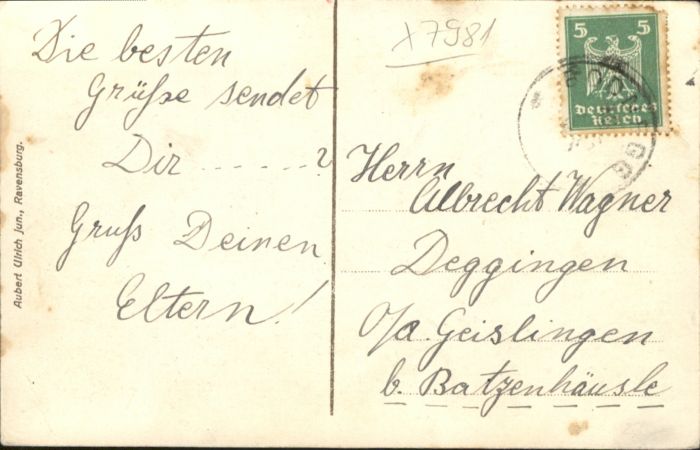 Die besten
Grüße sendet
Dir ......?
Gruß Deinen
Eltern!
Aubert Ulrich jun., Ravensburg.
X7981
5 5
Deutsches
Reich
Herrn
Albrecht Wagner
Deggingen
O/A. Geislingen
b. Batzenhäusle